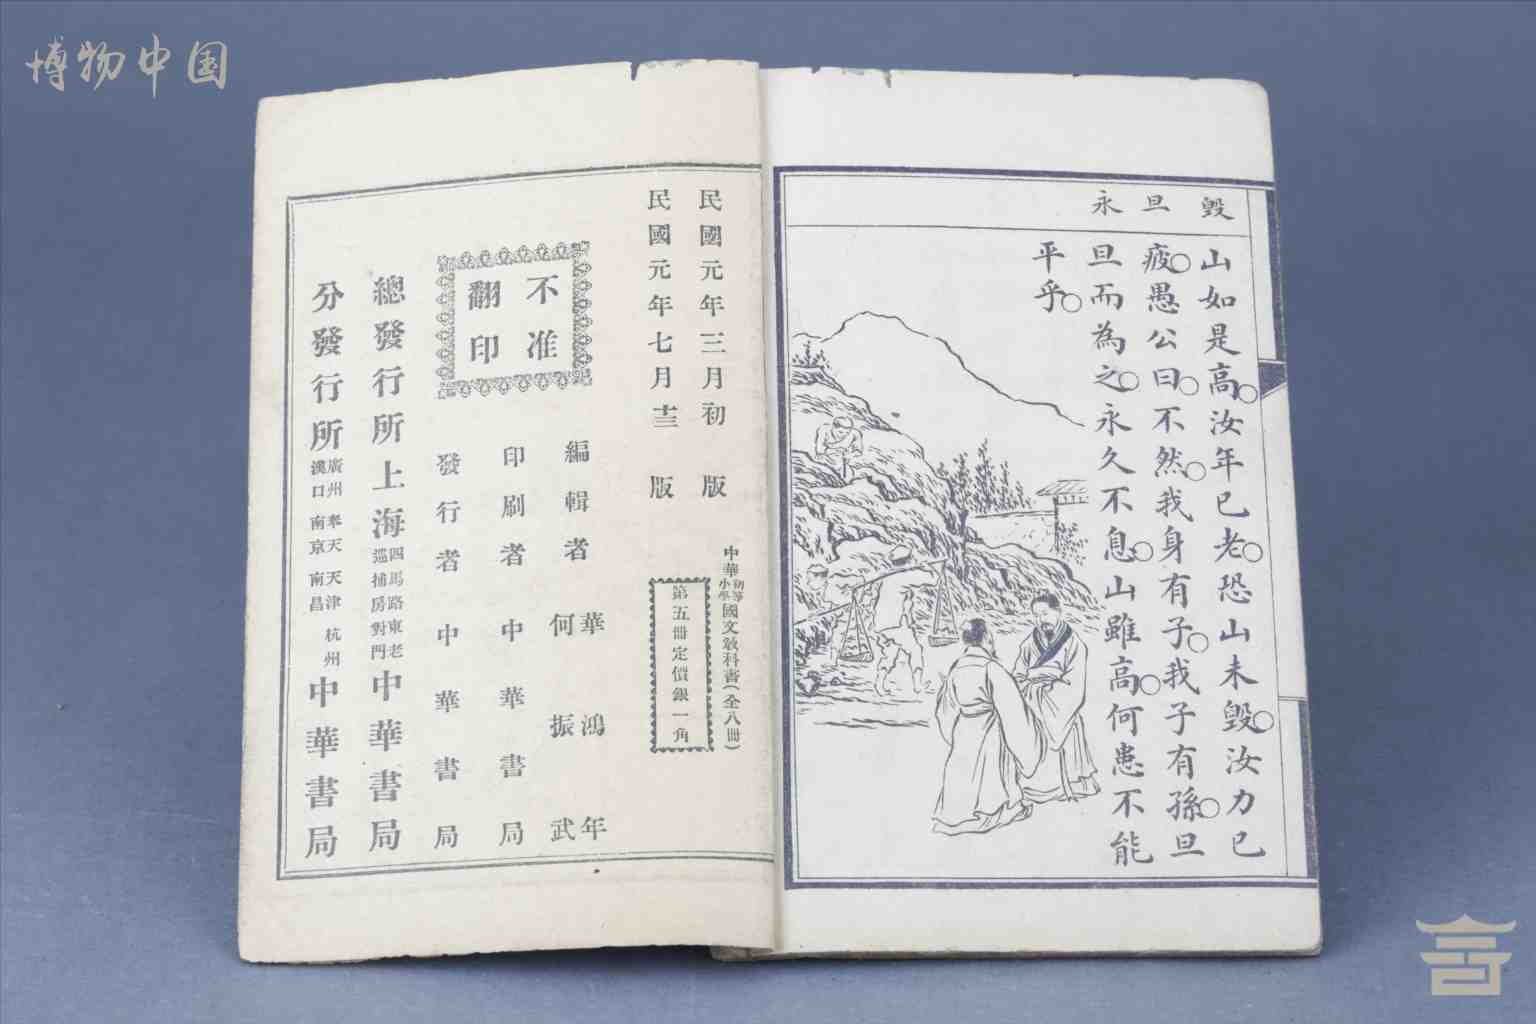 博物中国
毀 旦 永
山如是高○汝年已老○恐山未毀○汝力已
疲○愚公曰○不然○我身有子○我子有孫○旦
旦而為之○永久不息○山雖高○何患不能
平乎○
中華初等小學國文教科書(全八冊)
第五冊定價銀一角
民國元年三月初版
民國元年七月十三版
編輯者 華鴻年 何振武
印刷者 中華書局
發行者 中華書局
不准
翻印
總發行所 上海四馬路東老巡捕房對門 中華書局
分發行所 廣州 漢口 奉天 南京 天津 南昌 杭州 中華書局